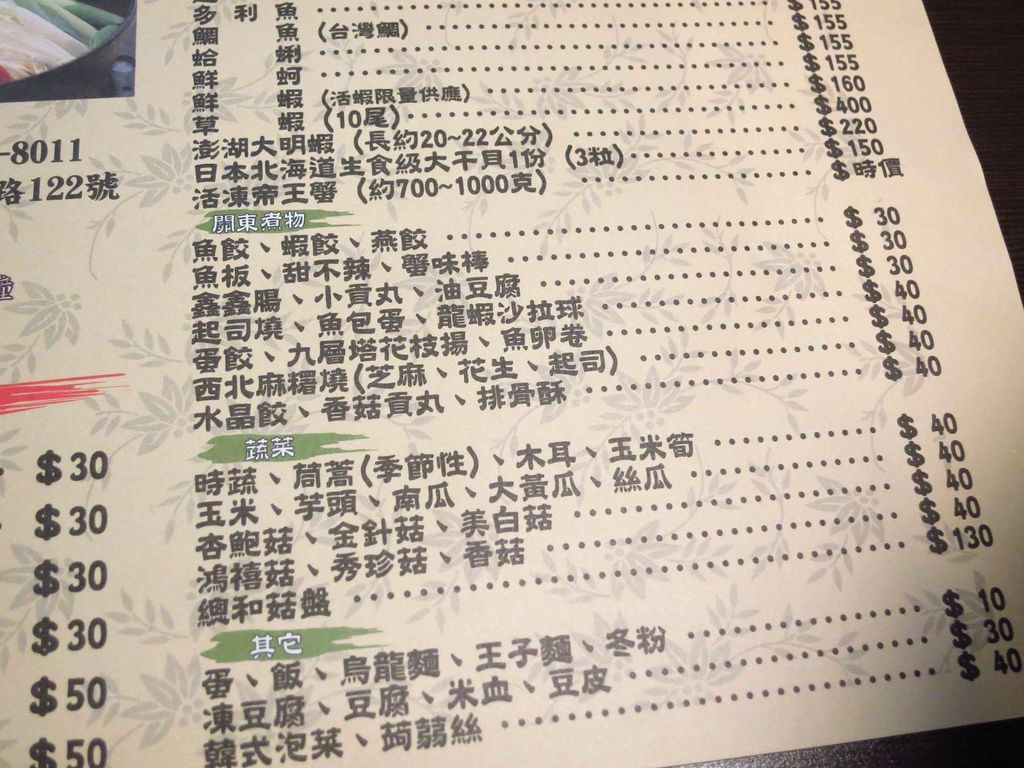 多利魚 $155
鯛魚(台灣鯛) $155
蛤蜊 $155
鮮蚵 $155
鮮蝦(活蝦限量供應) $160
草蝦(10尾) $400
澎湖大明蝦(長約20~22公分) $220
日本北海道生食級大干貝1份(3粒) $150
活凍帝王蟹(約700~1000克) $時價
關東煮物
魚餃、蝦餃、燕餃 $30
魚板、甜不辣、蟹味棒 $30
鑫鑫腸、小貢丸、油豆腐 $30
起司燒、魚包蛋、龍蝦沙拉球 $40
蛋餃、九層塔花枝揚、魚卵卷 $40
西北麻糬燒(芝麻、花生、起司) $40
水晶餃、香菇貢丸、排骨酥 $40
蔬菜
時蔬、茼蒿(季節性)、木耳、玉米筍 $40
玉米、芋頭、南瓜、大黃瓜、絲瓜 $40
杏鮑菇、金針菇、美白菇 $40
鴻禧菇、秀珍菇、香菇 $40
總和菇盤 $130
其它
蛋、飯、烏龍麵、王子麵、冬粉 $10
凍豆腐、豆腐、米血、豆皮 $30
韓式泡菜、蒟蒻絲 $40
-8011
路122號
$30
$30
$30
$30
$50
$50